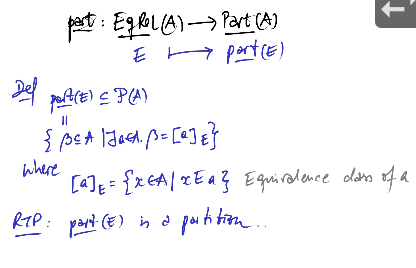 part : EqRel(A) → Part(A)
E ↦ part(E)
Def part(E) ⊆ P(A)
=
{ β ⊆ A | ∃a∈A. β = [a]_E }
where
[a]_E = { x ∈ A | x E a } Equivalence class of a
RTP : part(E) is a partition...